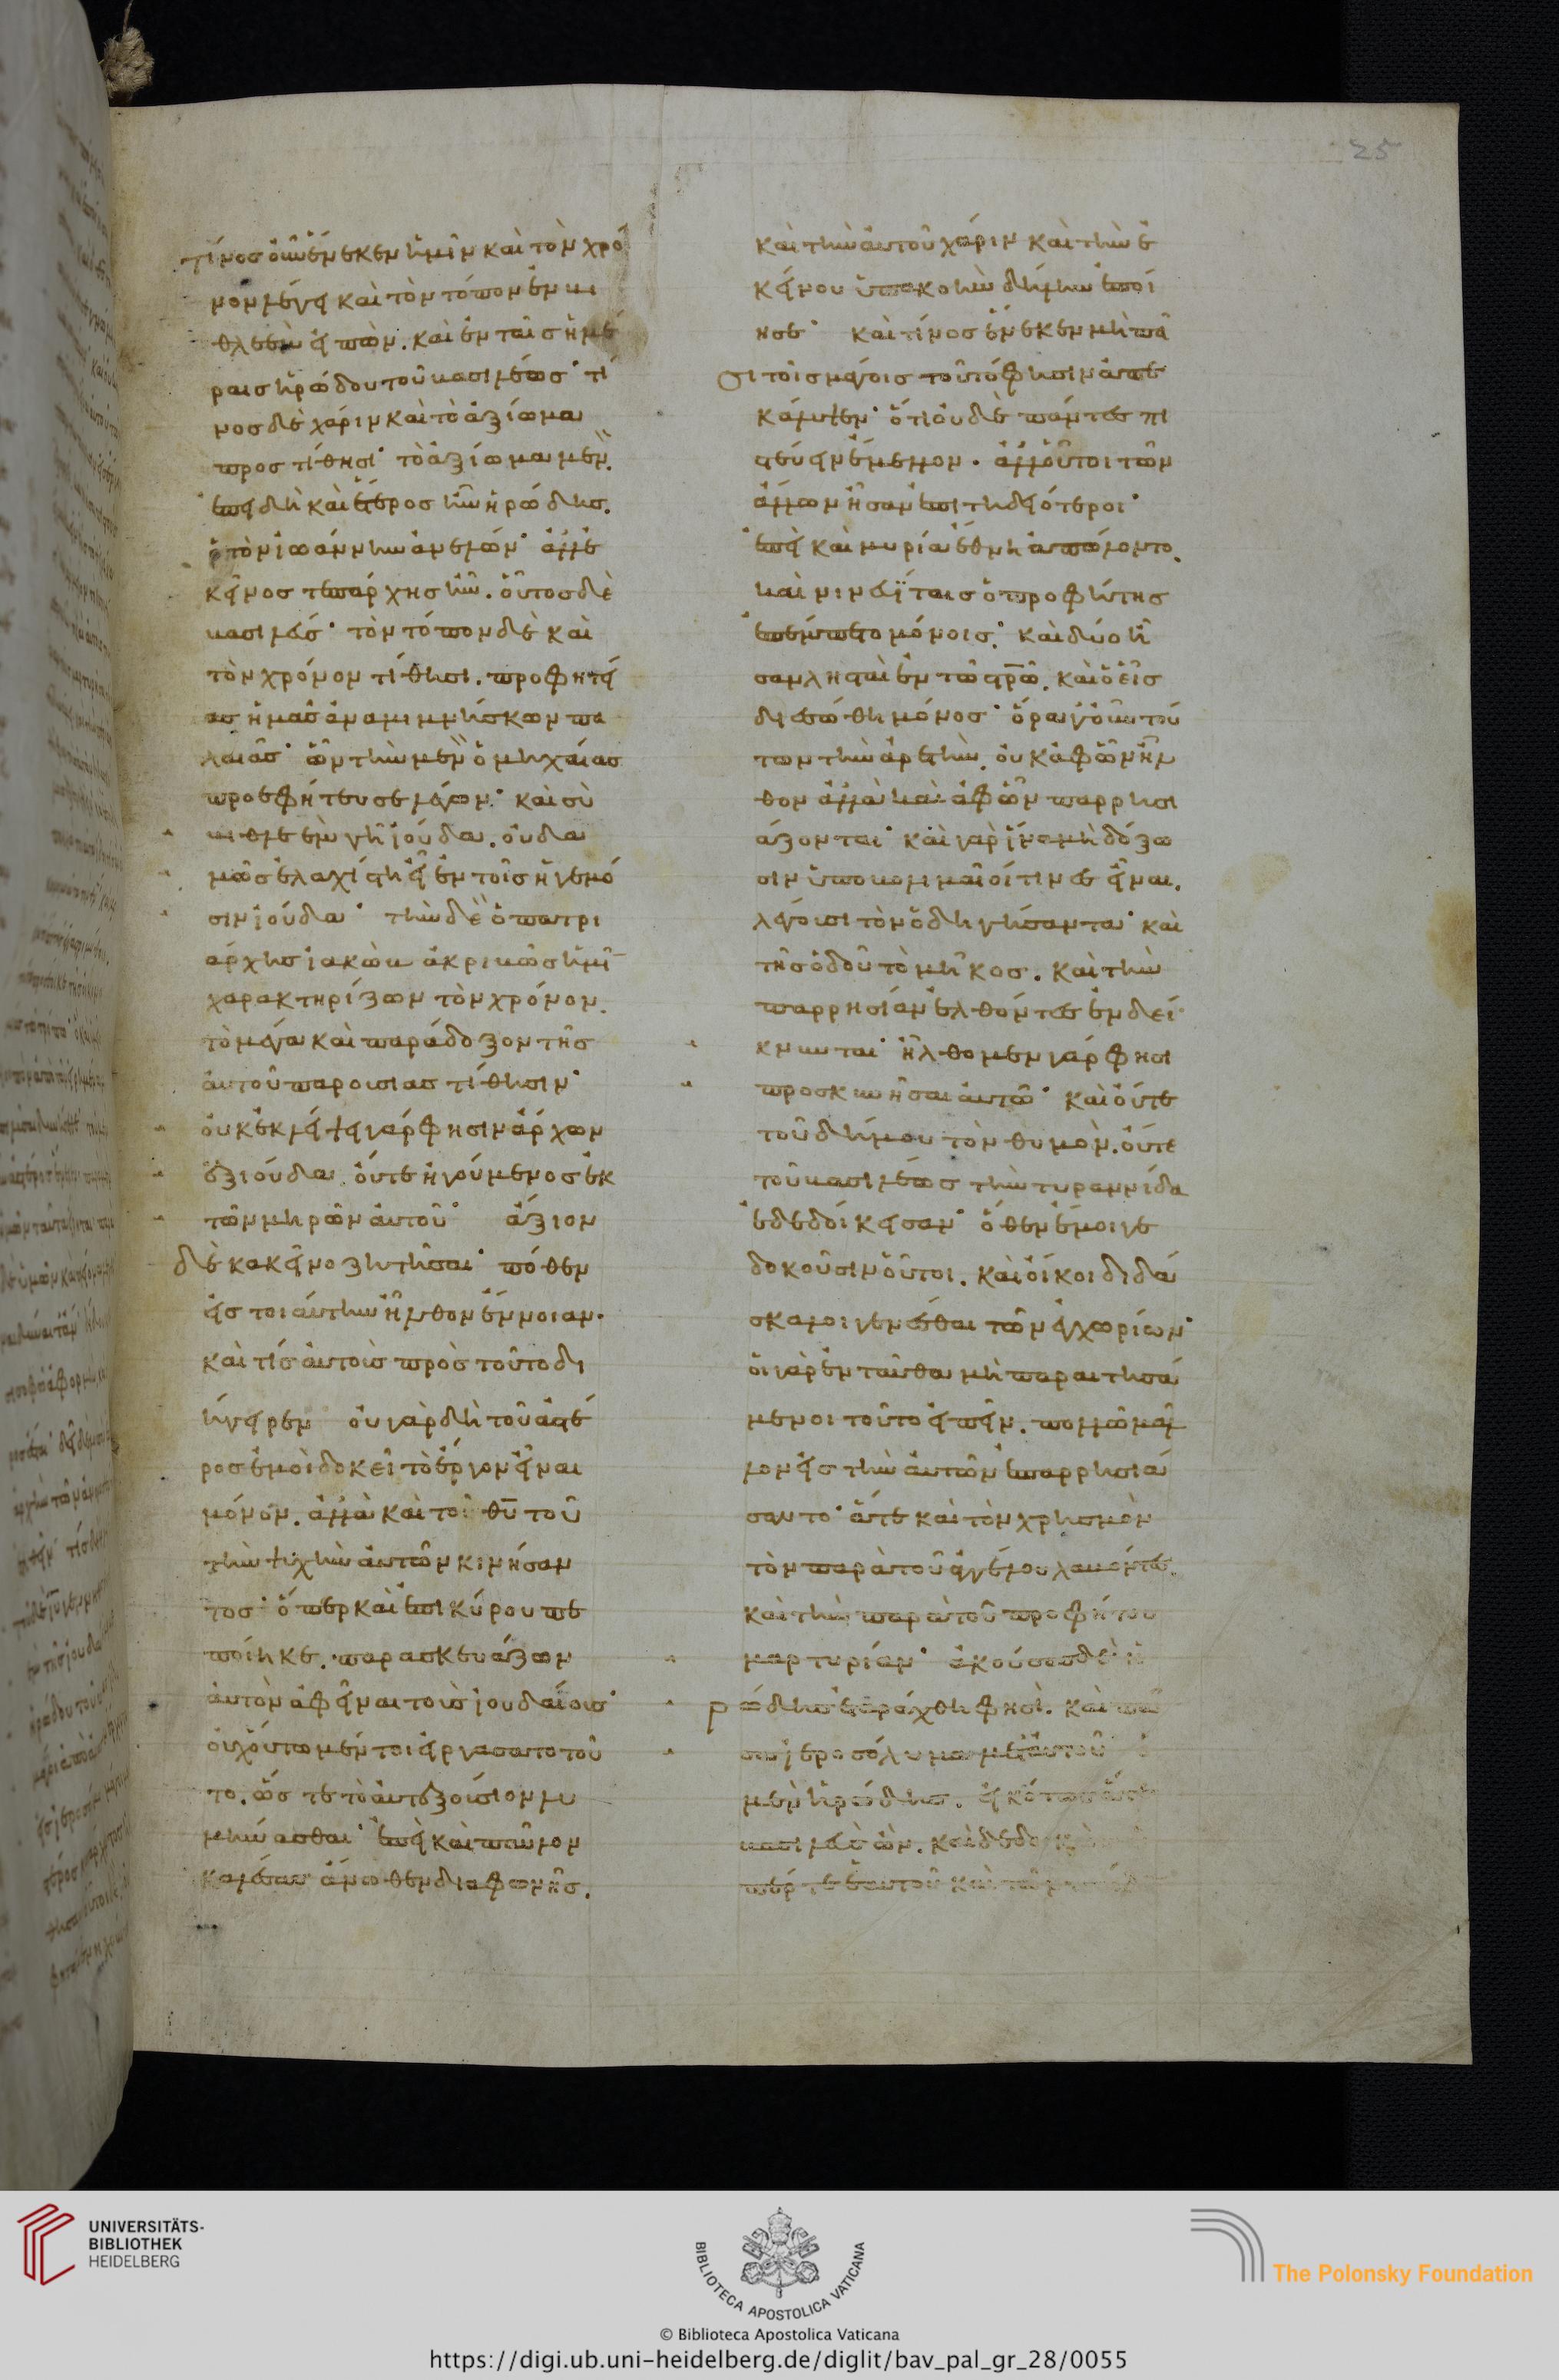 τίνος οὖν ἕνεκεν ἡμῖν καὶ τὸν χρό
νον λέγει καὶ τὸν τόπον ἐν βη
θλεὲμ εἰπὼν. καὶ ἐν ταῖς ἡμέ
ραις ἡρώδου τοῦ βασιλέως· τί
νος δὲ χάριν καὶ τὸ ἀξίωμα
προστίθησι· τὸ ἀξίωμα μὲν.
ἐπειδὴ καὶ ἕτερος ἦν ἡρώδης.
ὁ τὸν ἰωάννην ἀνελών· ἀλλ' ἐ
κεῖνος τετράρχης ἦν. οὗτος δὲ
βασιλεύς· τὸν τόπον δὲ καὶ
τὸν χρόνον τίθησι. προφητεί
ας ἡμᾶς ἀναμιμνήσκων πα
λαιᾶς· ὧν τὴν μὲν ὁ μηχαίας
προεφήτευσε λέγων· καὶ σὺ
βηθλεὲμ γῆ ἰούδα. οὐδα
μῶς ἐλαχίστη εἶ ἐν τοῖς ἡγεμό
σιν ἰούδα· τὴν δὲ ὁ πατρι
άρχης ἰακὼβ ἀκριβῶς ἡμῖ
χαρακτηρίζων τὸν χρόνον.
τὸ μέγα καὶ παράδοξον τῆς
αὐτοῦ παρουσίας τίθησιν·
οὐκ ἐκλείψει γάρ φησιν ἄρχων
ἐξ ἰούδα. οὔτε ἡγούμενος ἐκ
τῶν μηρῶν αὐτοῦ· ἄξιον
δὲ κακεῖνο ζητῆσαι· πόθεν
εἰς τοιαύτην ἦλθον ἔννοιαν.
καὶ τίς αὐτοὺς πρὸς τοῦτο δι
ήγειρεν οὐ γὰρ δὴ τοῦ ἀστέ
ρος ἐμοὶ δοκεῖ τὸ ἔργον εἶναι
μόνον. ἀλλὰ καὶ τοῦ θῦ τοῦ
τὴν ψυχὴν αὐτῶν κινήσαν
τος· ὅπερ καὶ ἐπὶ κύρου πε
ποίηκε. παρασκευάζων
αὐτὸν ἀφεῖναι τοὺς ἰουδαίους·
οὐχ οὕτω μέντοι εἰργάσατο τοῦ
το. ὥστε τὸ αὐτεξούσιον λυ
μήνασθαι· ἐπεὶ καὶ παῦλον
καλέσας ἄνωθεν διὰ φωνῆς.
καὶ τὴν αὐτοῦ χάριν καὶ τὴν ἐ
κείνου ὑπακοὴν δήλην ἐποί
ησε· καὶ τίνος ἕνεκεν μὴ πᾶ
σι τοῖς μάγοις τοῦτό φησιν ἀπε
κάλυψεν· ὅτι οὐδὲ πάντες πι
στεύειν ἔμελλον. ἀλλ' οὗτοι τῶν
ἄλλων ἦσαν ἐπιτηδειότεροι·
ἐπεὶ καὶ μυρία ἔθνη ἀπώλοντο.
καὶ νινευΐταις ὁ προφήτης
ἐπέμπετο μόνοις· καὶ δύο ἦ
σαν λησταὶ ἐν τῶ στρῶ. καὶ ὁ εἷς
διεσώθη μόνος· ὅρα γοῦν τού
των τὴν ἀρετὴν. οὐκ ἀφ' ὧν ἦλ
θον ἀλλὰ καὶ ἀφ' ὧν παρρησι
άζονται· καὶ γὰρ ἵνα μὴ δόξω
σιν ὑποβολιμαῖοί τινες εἶναι.
λέγουσι τὸν ὁδηγήσαντα· καὶ
τῆς ὁδοῦ τὸ μῆκος. καὶ τὴν
παρρησίαν ἐλθόντες ἐνδεί
κνυνται· ἤλθομεν γάρ φησι
προσκυνῆσαι αὐτῶ· καὶ οὔτε
τοῦ δήμου τὸν θυμὸν. οὔτε
τοῦ βασιλέως τὴν τυραννίδα
ἐδεδοίκεσαν· ὅθεν ἔμοιγε
δοκοῦσιν οὗτοι. καὶ οἴκοι διδά
σκαλοι γενέσθαι τῶν ἐγχωρίων·
οἱ γὰρ ἐνταῦθα μὴ παραιτησά
μενοι τοῦτο εἰπεῖν. πολλῶ μᾶλ
λον εἰς τὴν αὐτῶν ἐπαρρησιά
σαντο· ἅτε καὶ τὸν χρησμὸν
τὸν παρὰ τοῦ ἀγγέλου λαβόντες.
καὶ τὴν παρὰ τοῦ προφήτου
μαρτυρίαν· ἀκούσας δὲ ἡ
ρώδης ἐταράχθη φησὶ. καὶ πᾶ
σα ἱεροσόλυμα μετ' αὐτοῦ· ὁ
μὲν ἡρώδης. εἰκότως ἅτε
βασιλεὺς ὢν. καὶ
ὑπέρ τε ἑαυτοῦ καὶ τῶν
25
UNIVERSITÄTS-
BIBLIOTHEK
HEIDELBERG
BIBLIOTECA APOSTOLICA VATICANA
The Polonsky Foundation
© Biblioteca Apostolica Vaticana
https://digi.ub.uni-heidelberg.de/diglit/bav_pal_gr_28/0055